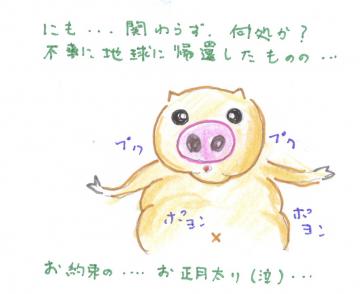 にも・・・関わらず、何処か?
不事に地球に帰還したものの・・・
プク
プク
ボヨン
ボヨン
お約束の・・・・お正月太り(泣)・・・